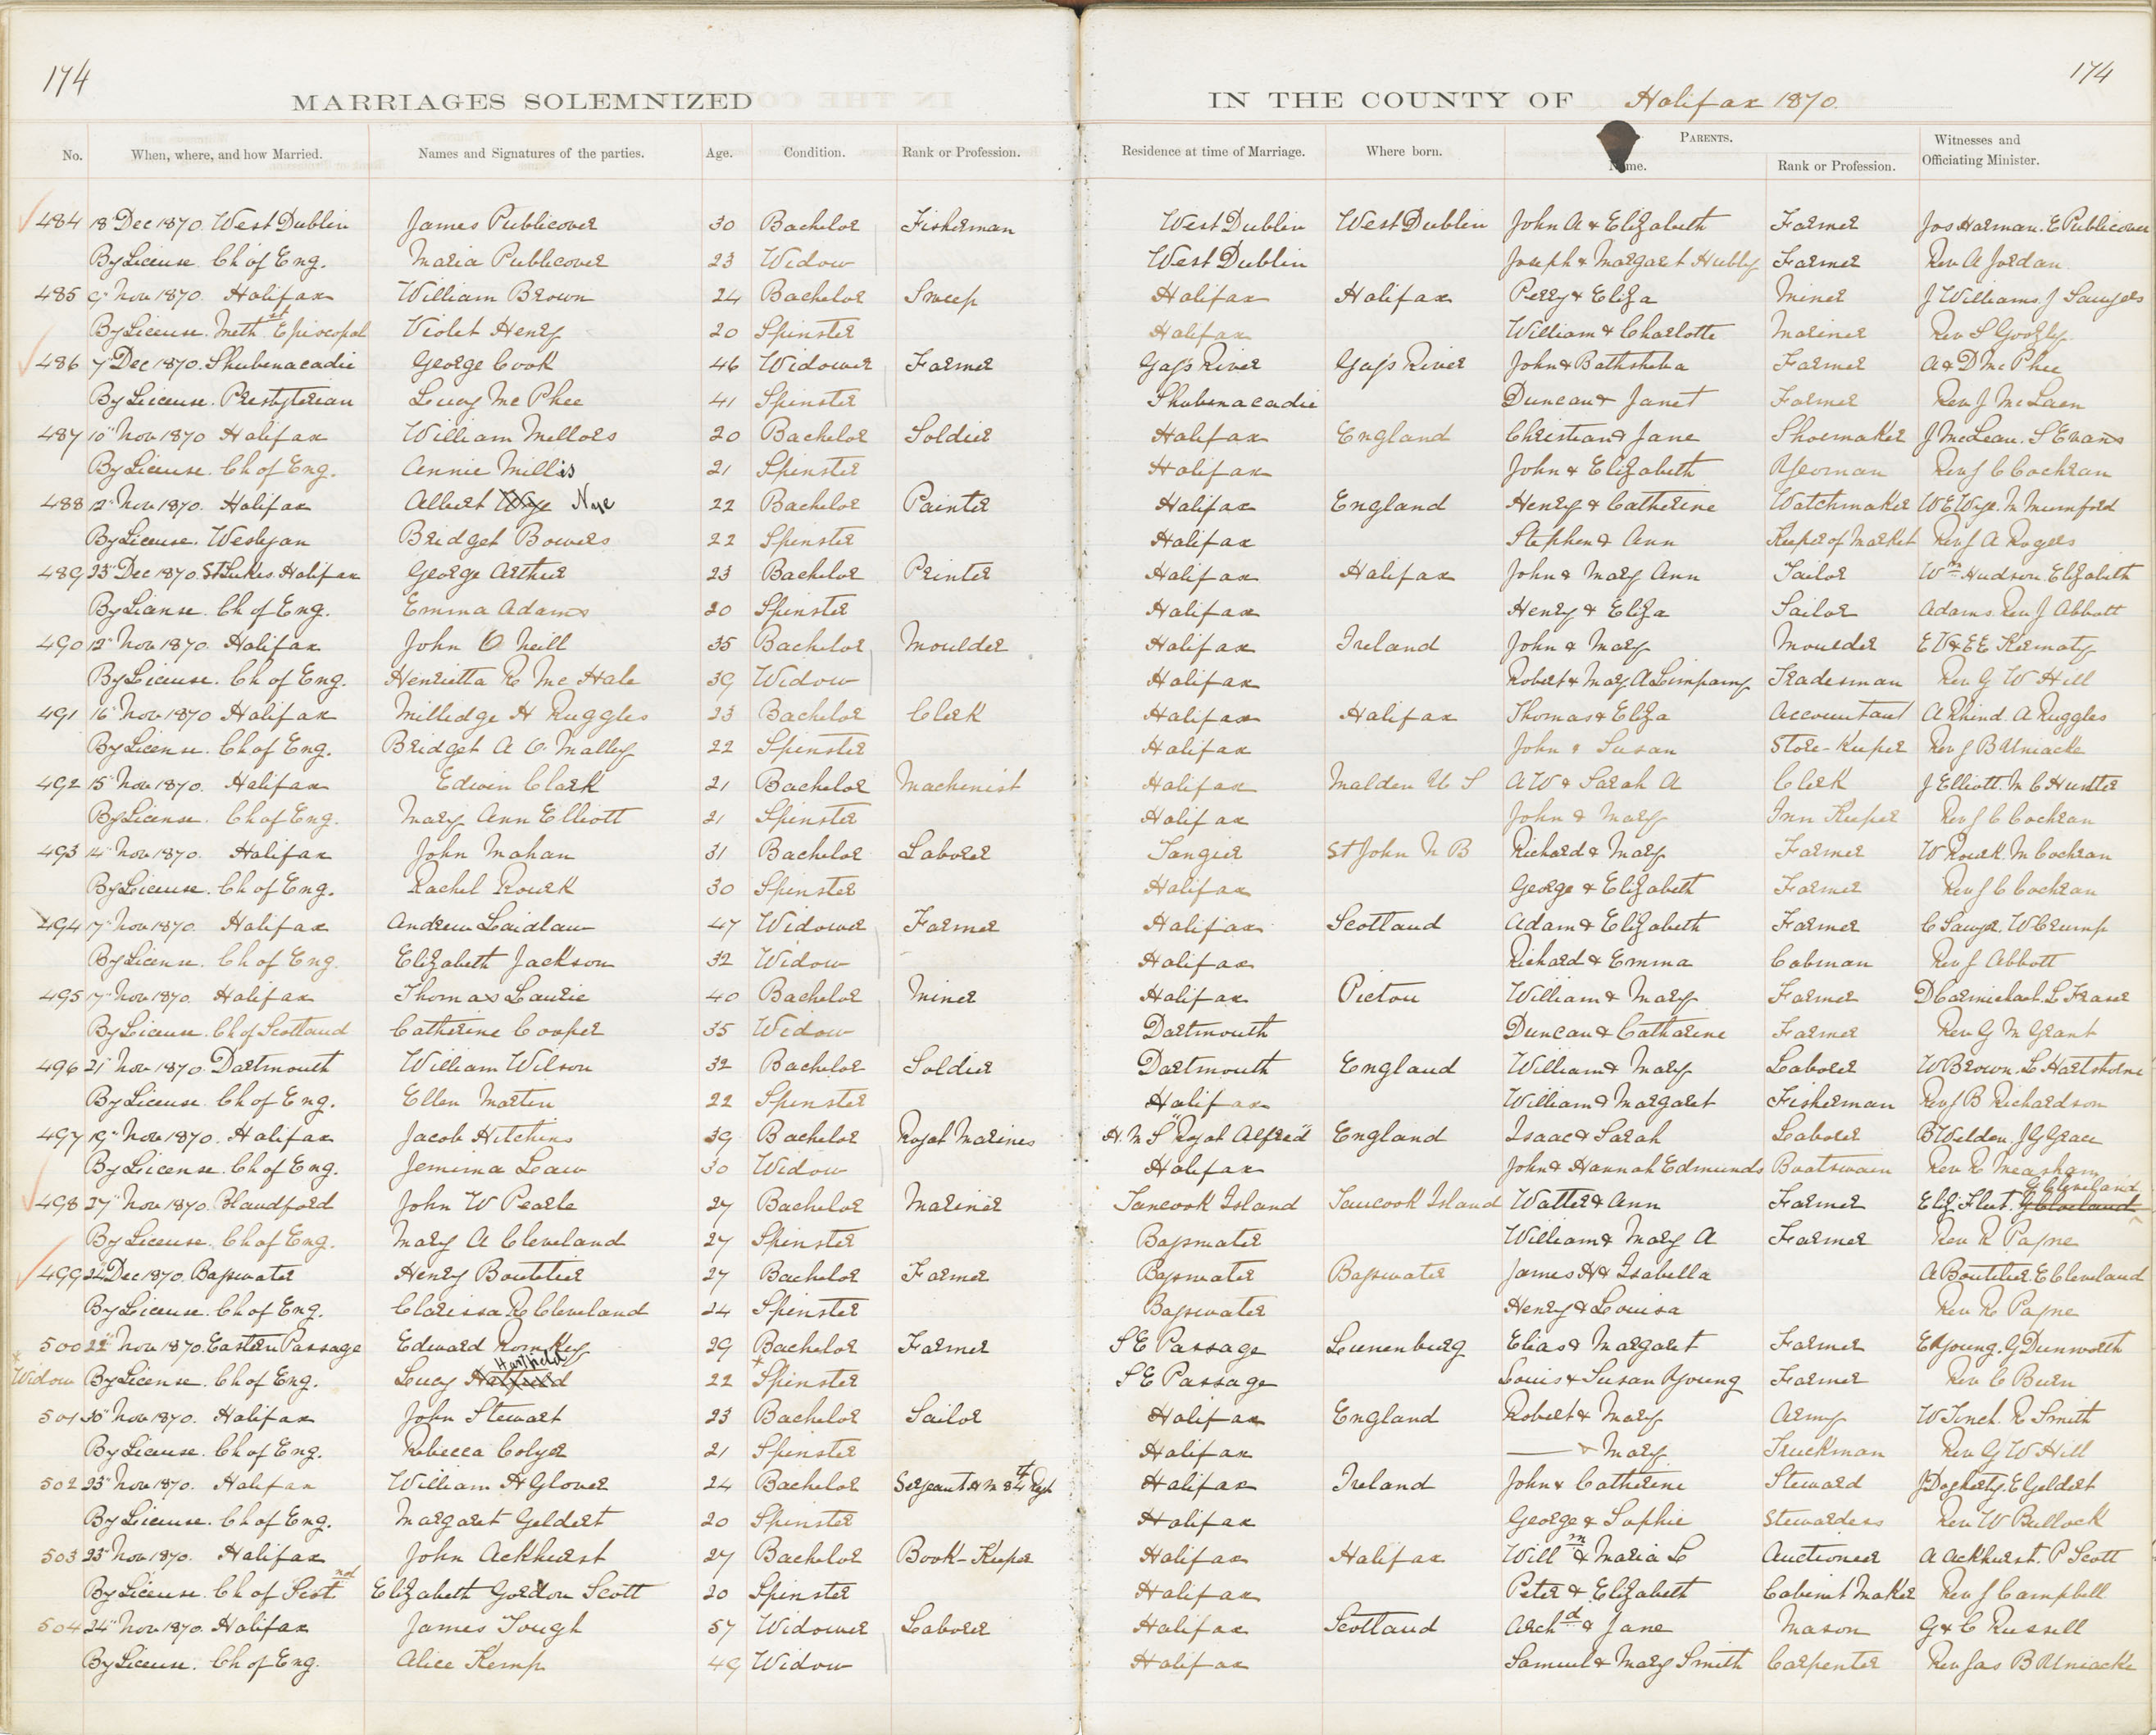 174
174
MARRIAGES SOLEMNIZED IN THE COUNTY OF Halifax 1870.
No. When, where, and how Married. Names and Signatures of the parties. Age. Condition. Rank or Profession. Residence at time of Marriage. Where born. PARENTS. Witnesses and
Name. Rank or Profession. Officiating Minister.
484 18" Dec 1870. West Dublin James Publicover 30 Bachelor Fisherman West Dublin West Dublin John A & Elizabeth Farmer Jos Harman. E Publicover
By License. Ch of Eng. Maria Publicover 23 Widow West Dublin Joseph & Margaret Hubley Farmer Rev A Jordan
485 9" Nov 1870. Halifax William Brown 24 Bachelor Sweep Halifax Halifax Perry & Eliza Miner J Williams. J Sawyers
By License. Meth st Episcopal Violet Henry 20 Spinster Halifax William & Charlotte Mariner Rev S
486 7" Dec 1870. Shubenacadie George Cook 46 Widower Farmer Gay's River Gay's River John & Bathsheba Farmer A & D McPhee
By License. Presbyterian Lucy McPhee 41 Spinster Shubenacadie Duncan & Janet Farmer Rev J McLaen
487 10" Nov 1870 Halifax William Mellors 20 Bachelor Soldier Halifax England Christian & Jane Shoemaker J McLean. S Evans
By License. Ch of Eng. Annie Millis 21 Spinster Halifax John & Elizabeth Yeoman Rev J C Cochran
488 12" Nov 1870. Halifax Albert Nye 22 Bachelor Painter Halifax England Henry & Catherine Watchmaker W E Wyse. M Mumford
By License. Wesleyan Bridget Bowers 22 Spinster Halifax Stephen & Ann Keeper of Market Rev J A Rogers
489 23" Dec 1870. St Lukes. Halifax George Arthur 23 Bachelor Printer Halifax Halifax John & Mary Ann Tailor Wm Hudson. Elizabeth
By Lianse. Ch of Eng. Emma Adams 20 Spinster Halifax Henry & Eliza Sailor Adams. Rev J Abbott
490 12" Nov 1870. Halifax John O Neill 35 Bachelor Moulder Halifax Ireland John & Mary Moulder E V & E E
By License. Ch of Eng. Henrietta R McHale 39 Widow Halifax Robert & Mary A Tradesman Rev G W Hill
491 16" Nov 1870 Halifax Milledge H Ruggles 23 Bachelor Clerk Halifax Halifax Thomas & Eliza Accountant A Rhind. A Ruggles
By License. Ch of Eng. Bridget A O. Malley 22 Spinster Halifax John & Susan Store-Keeper Rev J B Uniacke
492 15" Nov 1870. Halifax Edwin Clark 21 Bachelor Machenist Halifax Malden U S A W & Sarah A Clerk J Elliott. M C Hunter
By License. Ch of Eng. Mary Ann Elliott 21 Spinster Halifax John & Mary Inn Keeper Rev J C Cochran
493 14" Nov 1870. Halifax John Mahan 31 Bachelor Laborer Tangier St John N B Richard & Mary Farmer W Rourk. M Cochran
By License. Ch of Eng. Rachel Rourk 30 Spinster Halifax George & Elizabeth Farmer Rev J C Cochran
494 17" Nov 1870. Halifax Andrew Laidlaw 47 Widower Farmer Halifax Scotland Adam & Elizabeth Farmer C Sawyer. W Crump
By License. Ch of Eng. Elizabeth Jackson 32 Widow Halifax Richard & Emma Cabman Rev J Abbott
495 17" Nov 1870. Halifax Thomas Laurie 40 Bachelor Miner Halifax Pictou William & Mary Farmer D Carmichael. L Fraser
By License. Ch of Scotland Catherine Cooper 35 Widow Dartmouth Duncan & Catharine Farmer Rev G M Grant
496 21" Nov 1870. Dartmouth William Wilson 32 Bachelor Soldier Dartmouth England William & Mary Laborer W Brown. L Hartshorne
By License. Ch of Eng. Ellen Martin 22 Spinster Halifax William & Margaret Fisherman Rev J B Richardson
497 19" Nov 1870. Halifax Jacob Hitchins 39 Bachelor Royal Marines H. M S "Royal Alfred" England Isaac & Sarah Laborer B Welden. J G Grace
By License. Ch of Eng. Jemima Law 30 Widow Halifax John & Hannah Edmunds Boatswain Rev R Measham
498 27" Nov 1870. Blandford John W Pearle 27 Bachelor Mariner Tancook Island Tancook Island Walter & Ann Farmer Eliz. Fleet. G Cleveland
By License. Ch of Eng. Mary A Cleveland 27 Spinster Bayswater William & Mary A Farmer Rev R Payne
499 24" Dec 1870. Bayswater Henry Boutilier 27 Bachelor Farmer Bayswater Bayswater James H & Isabella A Boutilier. E Cleveland
By License. Ch of Eng. Clarissa R Cleveland 24 Spinster Bayswater Henry & Louisa Rev R Payne
500 22" Nov 1870. Eastern Passage Edward Romkey 29 Bachelor Farmer S E Passage Lunenburg Elias & Margaret Farmer E Young. G Dunworth
x Widow By License. Ch of Eng. Lucy Hartfield 22 x Spinster S E Passage Louis & Susan Young Farmer Rev C Burn
501 30" Nov 1870. Halifax John Stewart 23 Bachelor Sailor Halifax England Robert & Mary Army W Tinch. R Smith
By License. Ch of Eng. Rebecca Colyer 21 Spinster Halifax — & Mary Truckman Rev G W Hill
502 23" Nov 1870. Halifax William H Glover 24 Bachelor Sergeant H M 84th Regt Halifax Ireland John & Catherine Steward J Dogherty. E Geldert
By License. Ch of Eng. Margaret Geldert 20 Spinster Halifax George & Sophie Stewardess Rev W Bullock
503 23" Nov 1870. Halifax John Ackhurst 27 Bachelor Book-Keeper Halifax Halifax Willm & Maria L Auctioneer A Ackhurst. P Scott
By License. Ch of Scotnd Elizabeth Gordon Scott 20 Spinster Halifax Peter & Elizabeth Cabinet Maker Rev J Campbell
504 24" Nov 1870. Halifax James Tough 57 Widower Laborer Halifax Scotland Archd & Jane Mason G & C Russell
By License. Ch of Eng. Alice Kemp 49 Widow Halifax Samuel & Mary Smith Carpenter Rev Jas B Uniacke